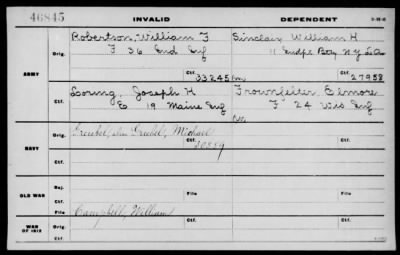 46845 INVALID DEPENDENT
ARMY
Orig. Robertson, William F Sinclair William H
F 36 Ind Inf 11 Indpt Bty N Y L A
Ctf. 33245 Ctf. 27958
Loring, Joseph H Trownfelter, Elmore
Ctf. E 19 Maine Inf F 24 Wis Inf
NAVY
Orig. Greubel, alias Greibel, Michael Orig.
Ctf. 20859 Ctf.
OLD WAR
Rej.
Ctf. File File
WAR OF 1812
Orig. Campbell, William Ctf.
Ctf.